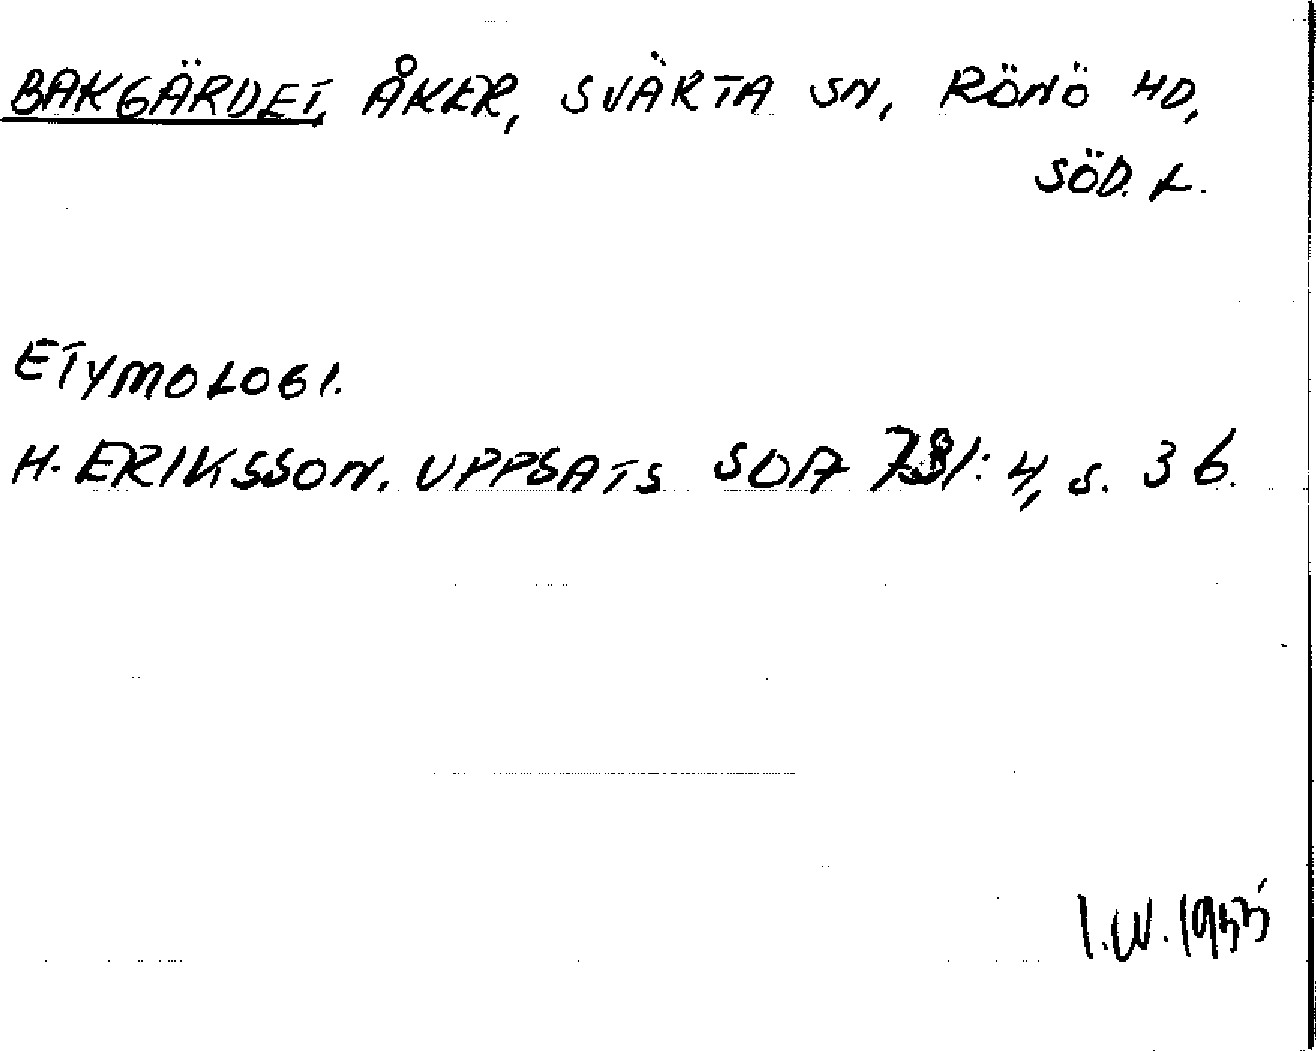 BAKGÄRDET, ÅKER, SVÄRTA SN, RÖNÖ HD,
SÖD. L.
ETYMOLOGI.
H. ERIKSSON. UPPSATS SOA 781:4, s. 36.
I.W. 1955